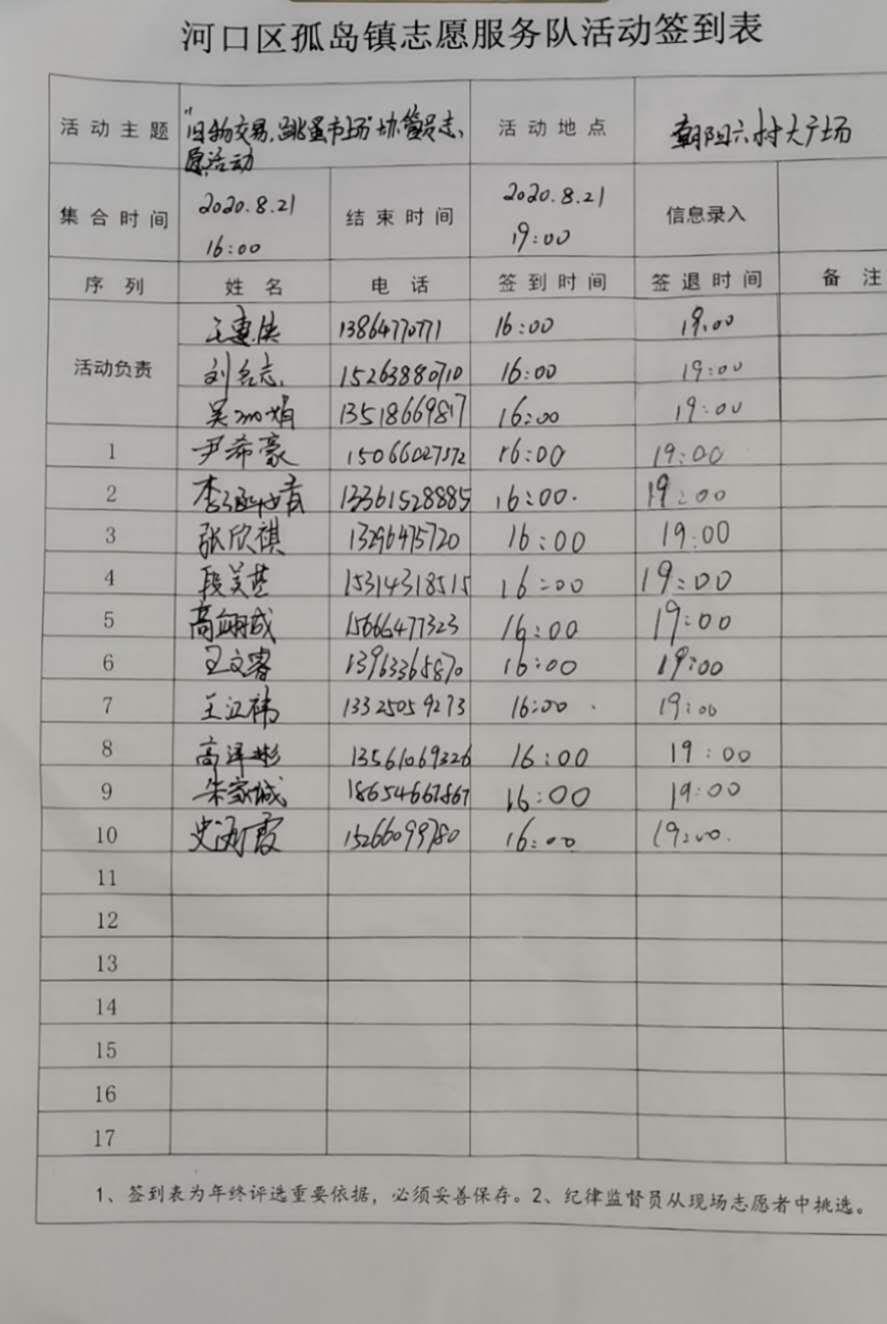 河口区孤岛镇志愿服务队活动签到表
活动主题 "旧物交易,跳蚤市场"协管员志愿活动 活动地点 朝阳六村大广场
集合时间 2020.8.21 16:00 结束时间 2020.8.21 19:00 信息录入
序列 姓名 电话 签到时间 签退时间 备注
活动负责
王惠侠 13864770771 16:00 19:00
刘名志 15263880710 16:00 19:00
吴娟 13518669817 16:00 19:00
1 尹希豪 15066027572 16:00 19:00
2 李 13361528885 16:00. 19:00
3 张欣祺 13296475720 16:00 19:00
4 段美莲 15314318515 16:00 19:00
5 高翊成 15666477323 16:00 19:00
6 王文睿 13963365870 16:00 19:00
7 王江祎 13325059273 16:00 19:00
8 高泽彬 13561069326 16:00 19:00
9 朱家城 18654667867 16:00 19:00
10 史海霞 15266099780 16:00 19:00.
11
12
13
14
15
16
17
1、签到表为年终评选重要依据，必须妥善保存。2、纪律监督员从现场志愿者中挑选。